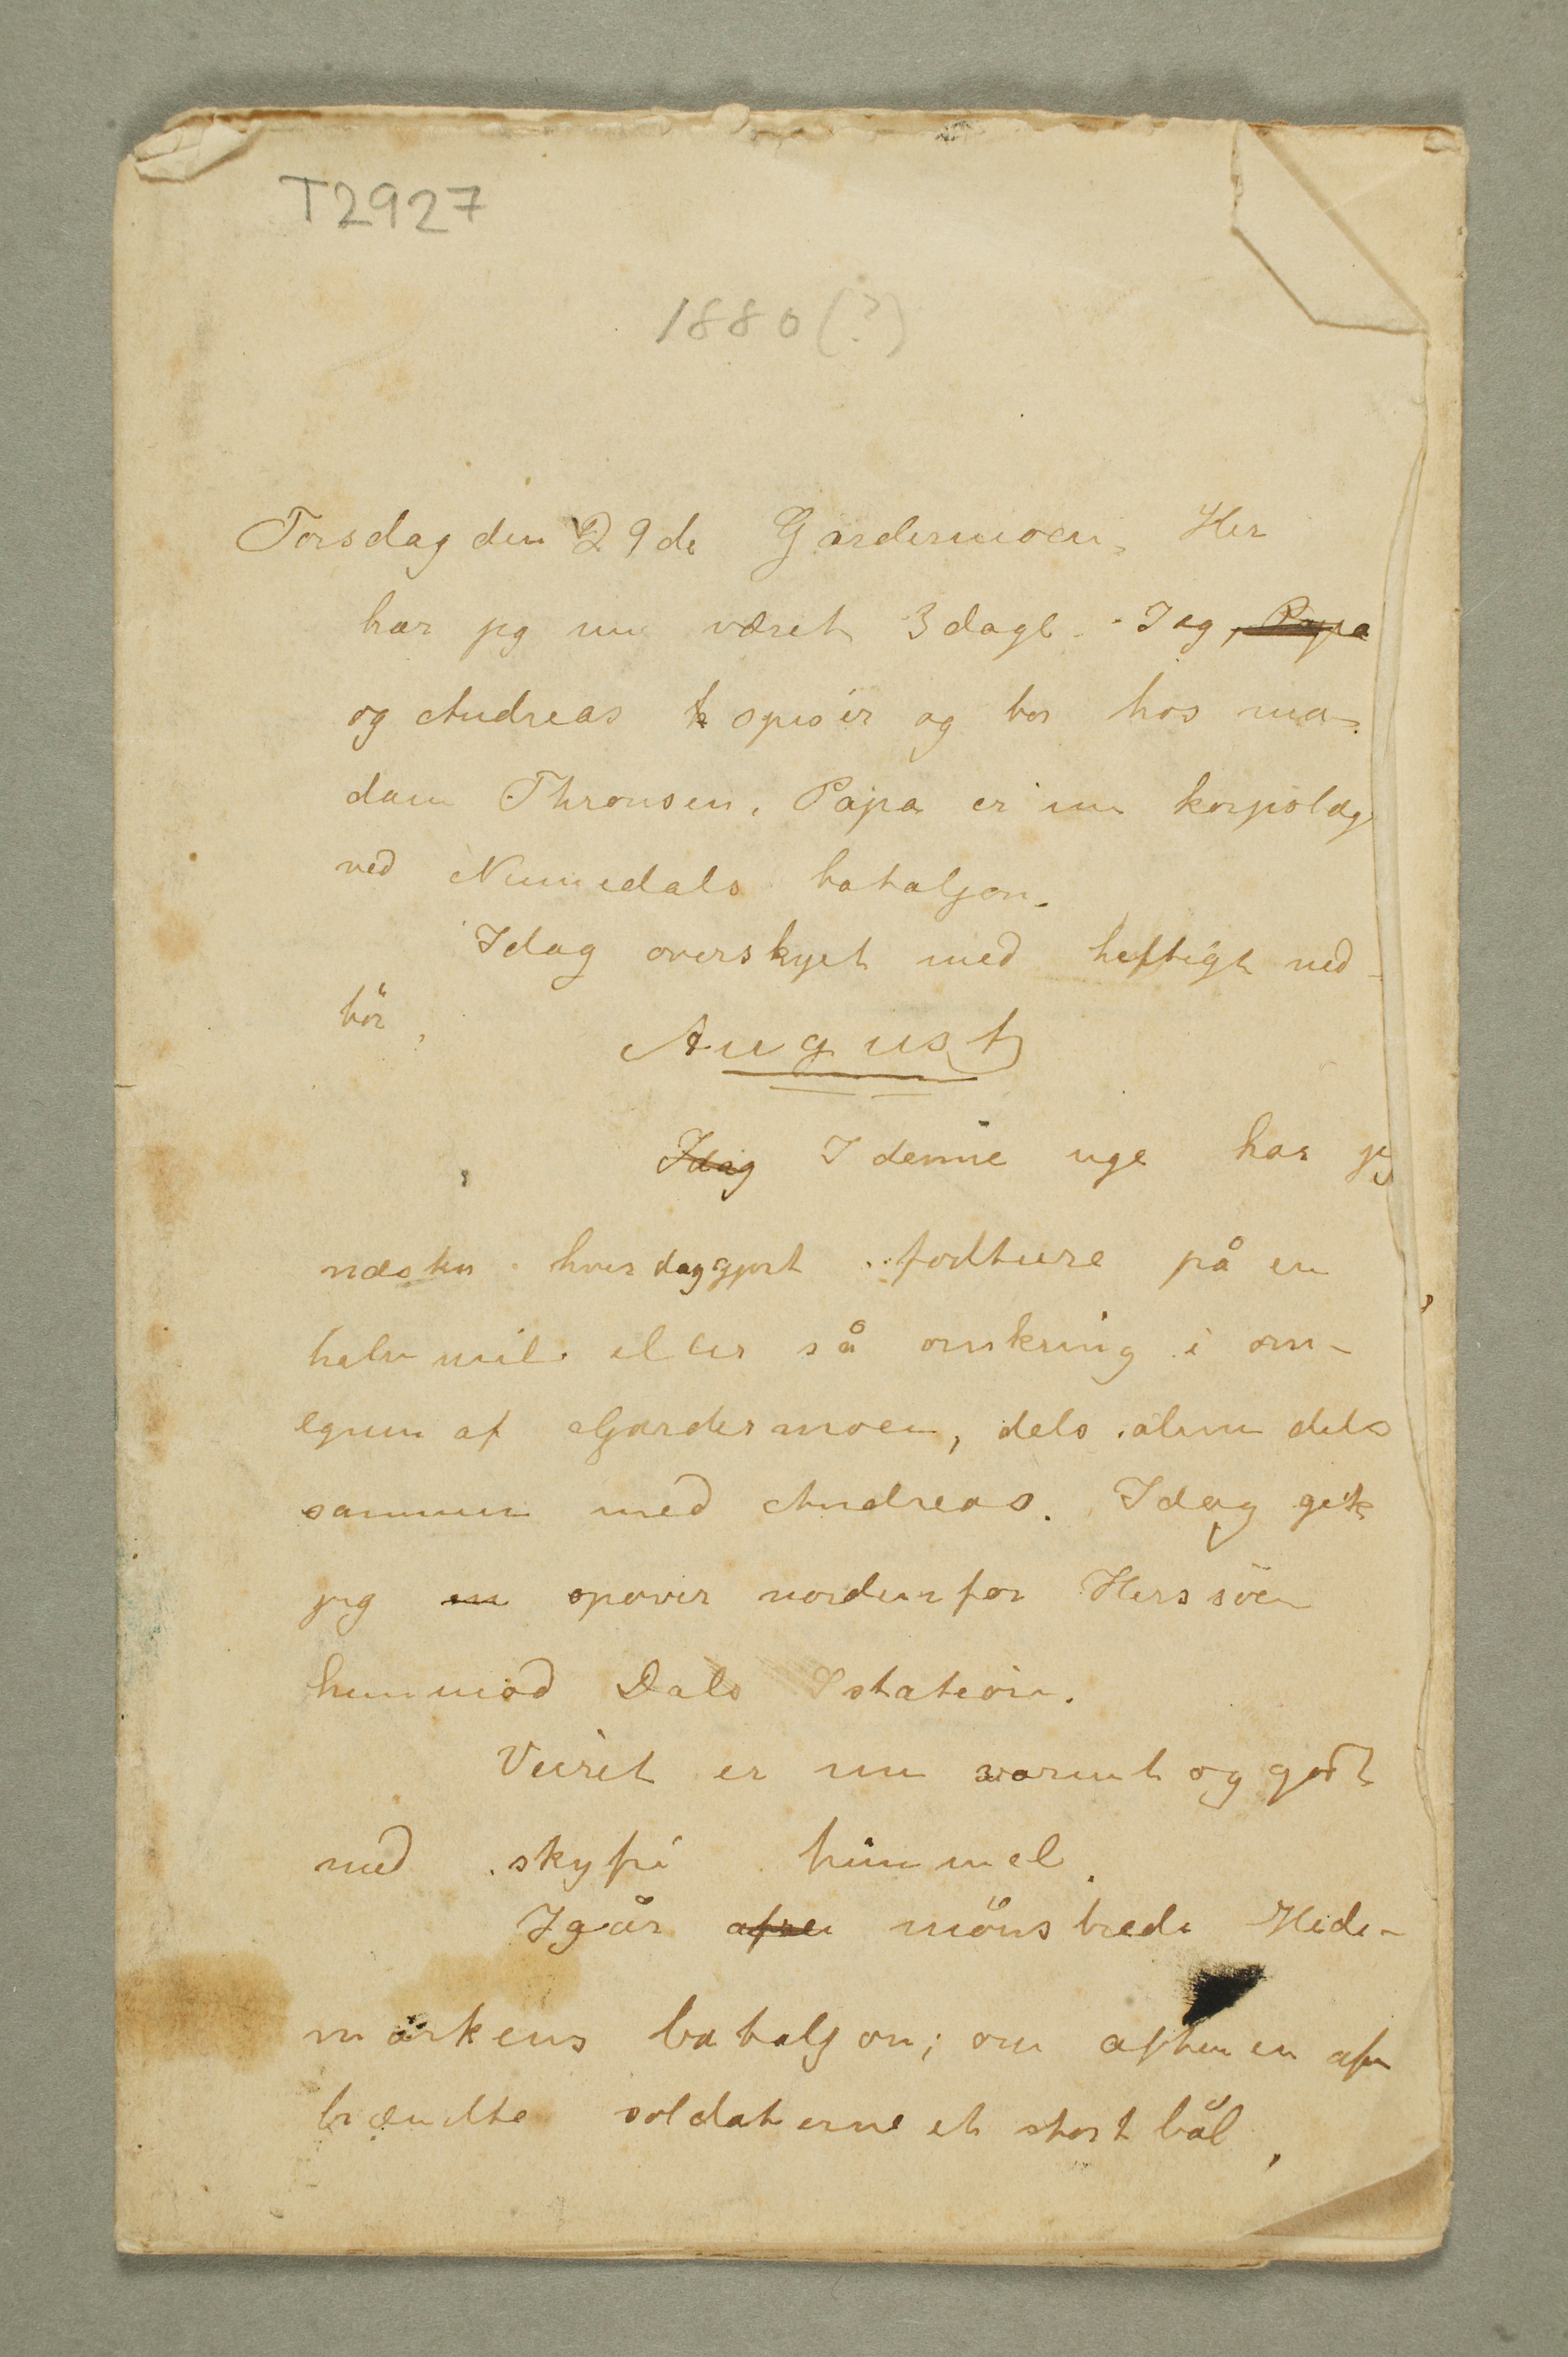 T2927
1880 (?)
Torsdag den 29de Gardermoen, Her
har jeg nu været 3 dage. Jeg, Papa
og Andreas spiser og bor hos ma-
dam Thronsen. Papa er nu korpslæge
ved Numedals bataljon.
Idag overskyet med heftigt ned-
bör,
August
Idag I denne uge har jeg
næsten hver dag gjort fodture på en
halv mil eller så omkring i om-
egnen af Gardermoen, dels alene dels
sammen med Andreas. Idag gik
jeg en opover nordenfor Herssöen
henimod Dals station.
Veiret er nu varmt og godt
med skyfri himmel.
Igår mönstrede Hede-
markens bataljon; om aftenen af
brændte soldaterne et stort bål,